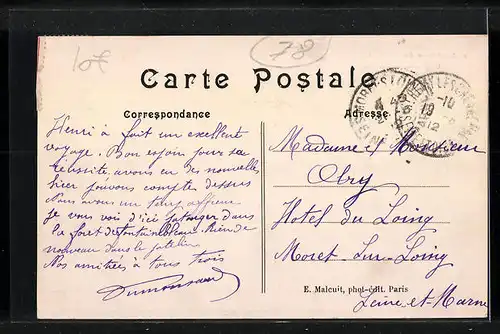 10f
78
Carte Postale
Correspondance
Adresse
Henri a fait un excellent
voyage. Bon espoir pour sa
réussite, avons eu des nouvelles
hier pouvons compter dessus
Nous avons un temps affreux
Je vous vois d'ici patauger dans
la forêt de Fontainebleau. Rien de
nouveau dans le
Nos amitiés à tous trois
Madame et Monsieur
Obry
Hotel du Loing
Moret-sur-Loing
Seine-et-Marne
E. Malcuit, phot-édit. Paris